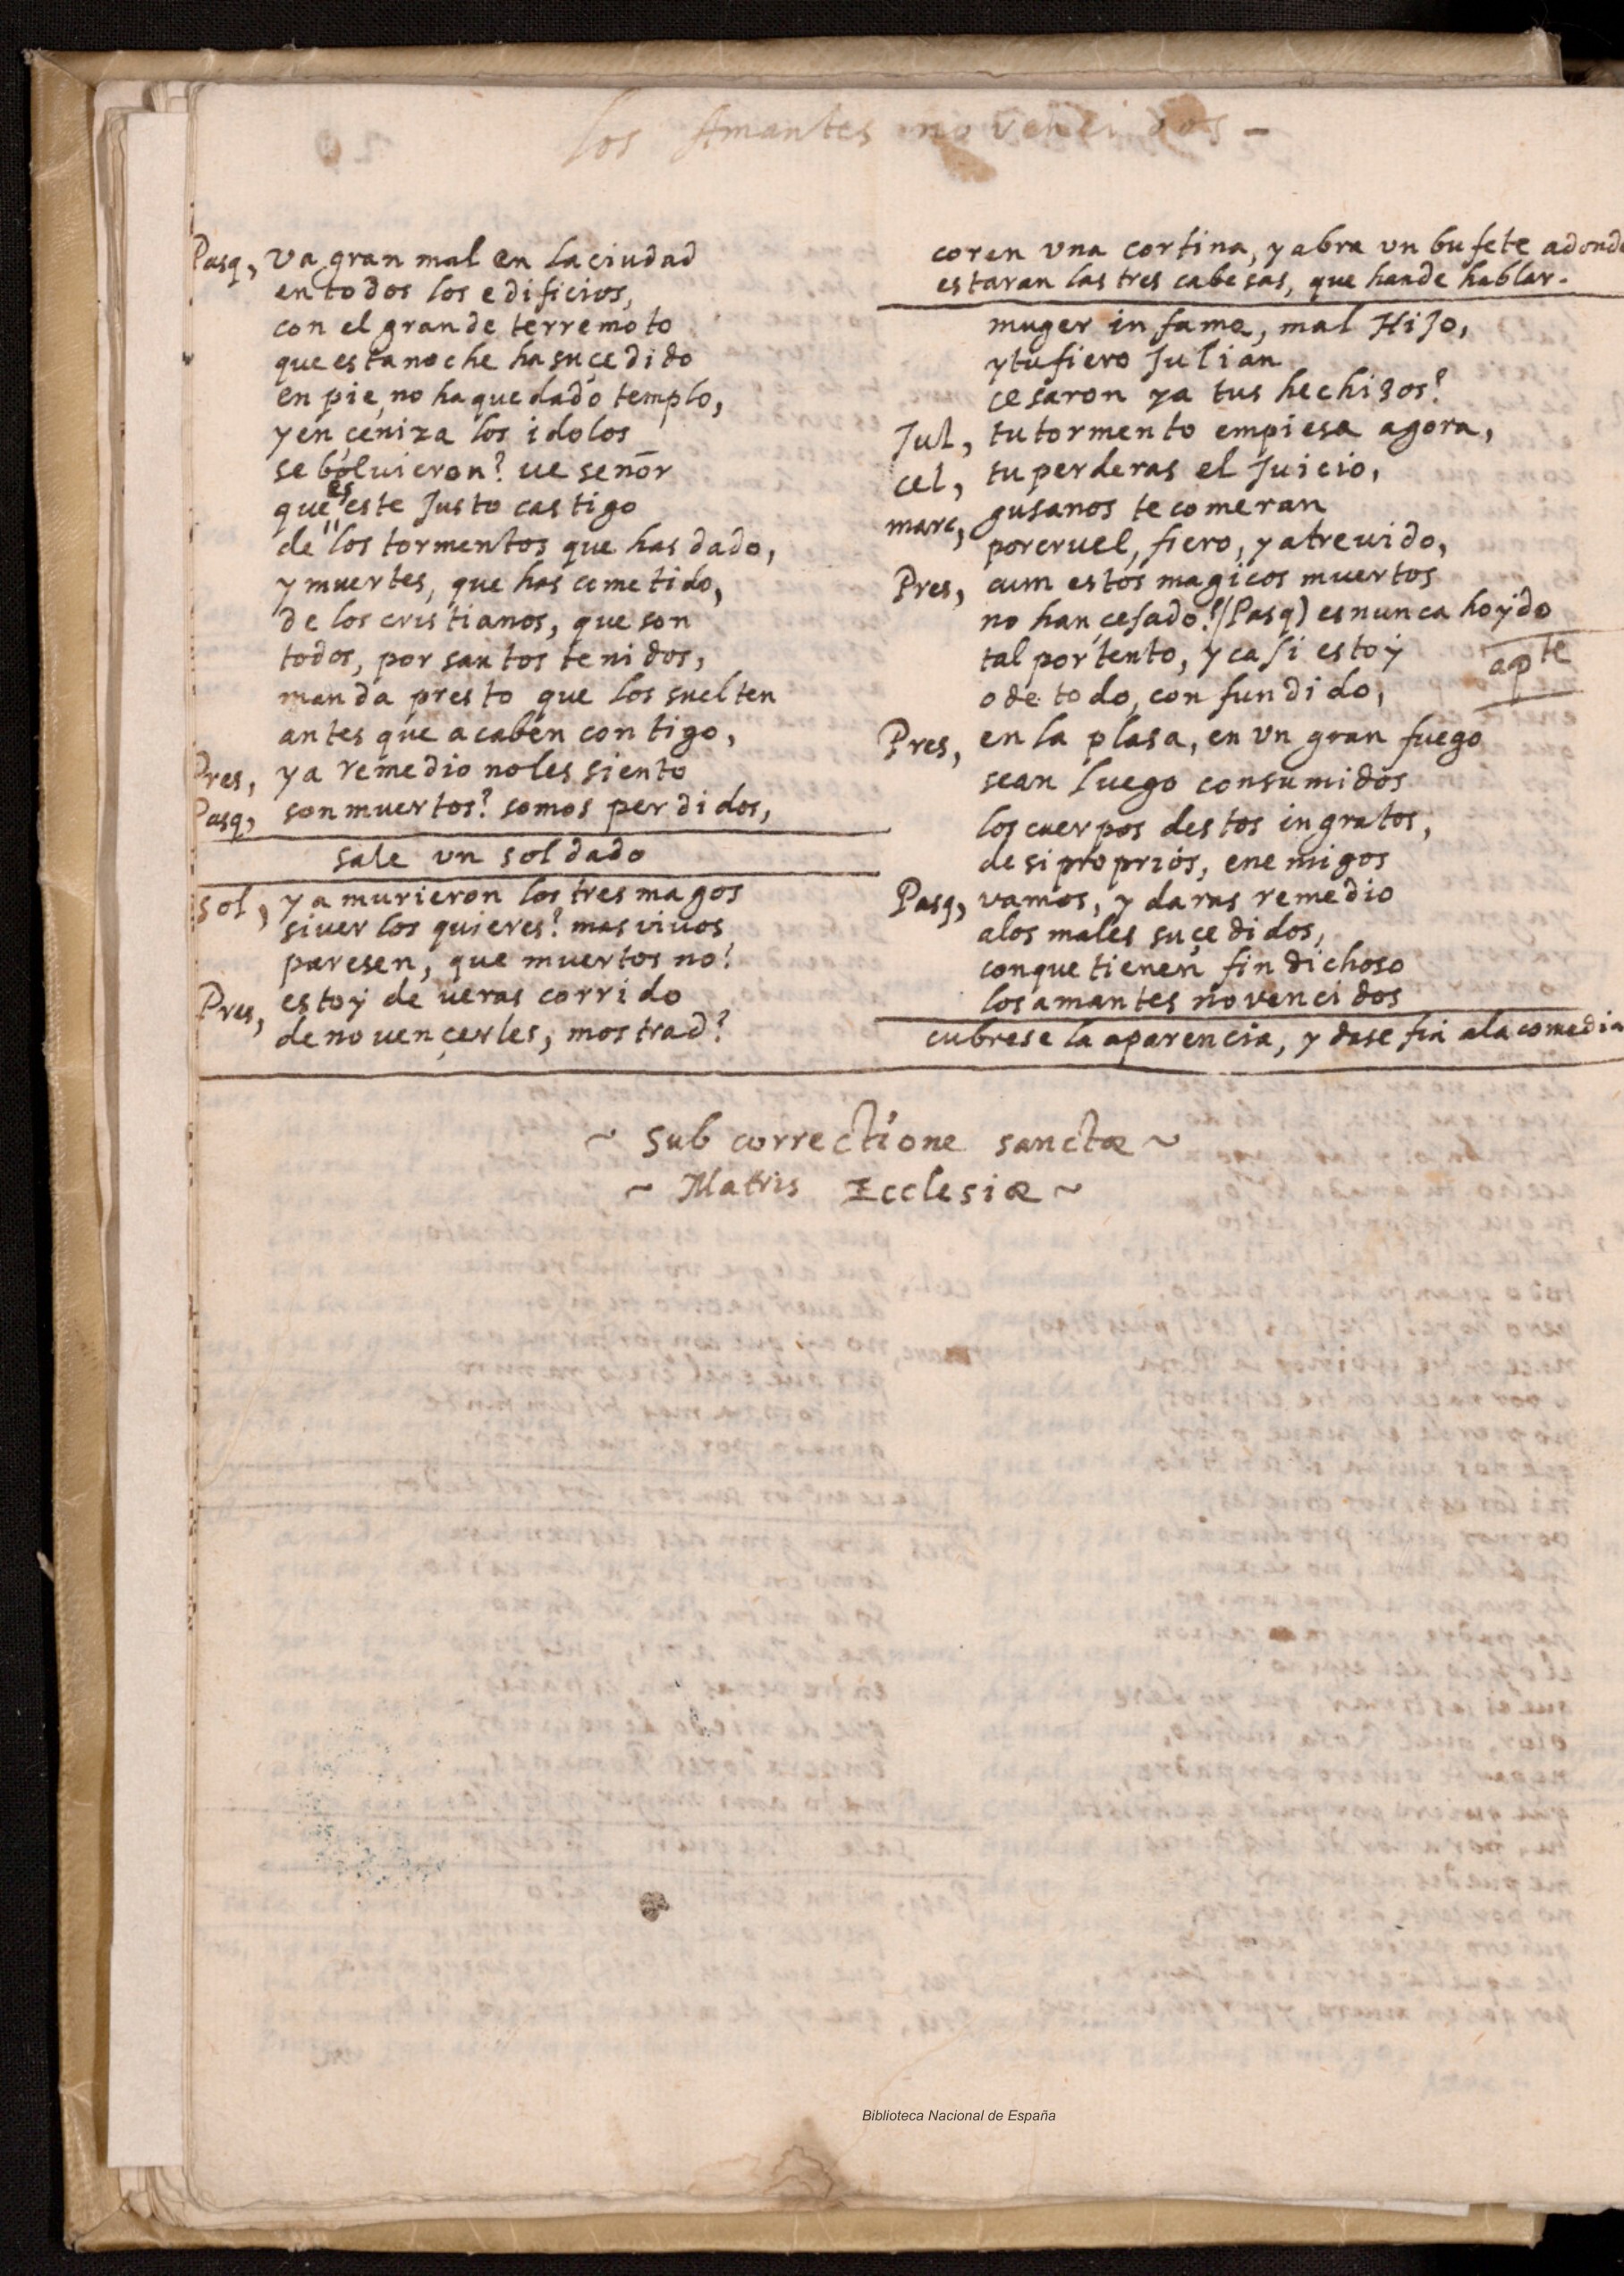 los Amantes no vencidos -
Pasq, Va gran mal en la ciudad
en todos los edificios,
con el grande terremoto
que esta noche ha suçedido
en pie, no ha quedado templo,
y en çeniza los idolos
se bolvieron? ve señor
que es este Justo castigo
de los tormentos que has dado,
y muertes, que has cometido,
de los cristianos, que son
todos, por santos tenidos,
manda presto que los suelten
antes que acaben contigo,
Pres, ya remedio no les siento
Pasq, son muertos? somos perdidos,
sale un soldado
sol, ya murieron los tres magos
si ver los quieres? mas vivos
paresen, que muertos no?
Pres, estoy de veras corrido
de no vençerles, mostrad?
coren una cortina, y abra un bufete adonde
estaran las tres cabesas, que hande hablar.
muger infame, mal Hijo,
y tu fiero Julian
cesaron ya tus hechizos?
Jul, tu tormento empiesa agora,
cel, tu perderas el Juicio,
marc, gusanos te comeran
por cruel, fiero, y atrevido,
Pres, aun estos magicos muertos
no han çesado? (Pasq) es nunca hoydo
tal portento, y casi estoy apte
o de todo, confundido,
Pres, en la plasa, en un gran fuego
sean luego consumidos
los cuerpos destos ingratos,
de si proprios, enemigos
Pasq, vamos, y daras remedio
a los males suçedidos,
con que tienen fin dichoso
los amantes no vencidos
cubrese la aparencia, y dase fin ala comedia
~ Sub correctione sanctæ ~
~ Matris Ecclesiæ ~
Biblioteca Nacional de España